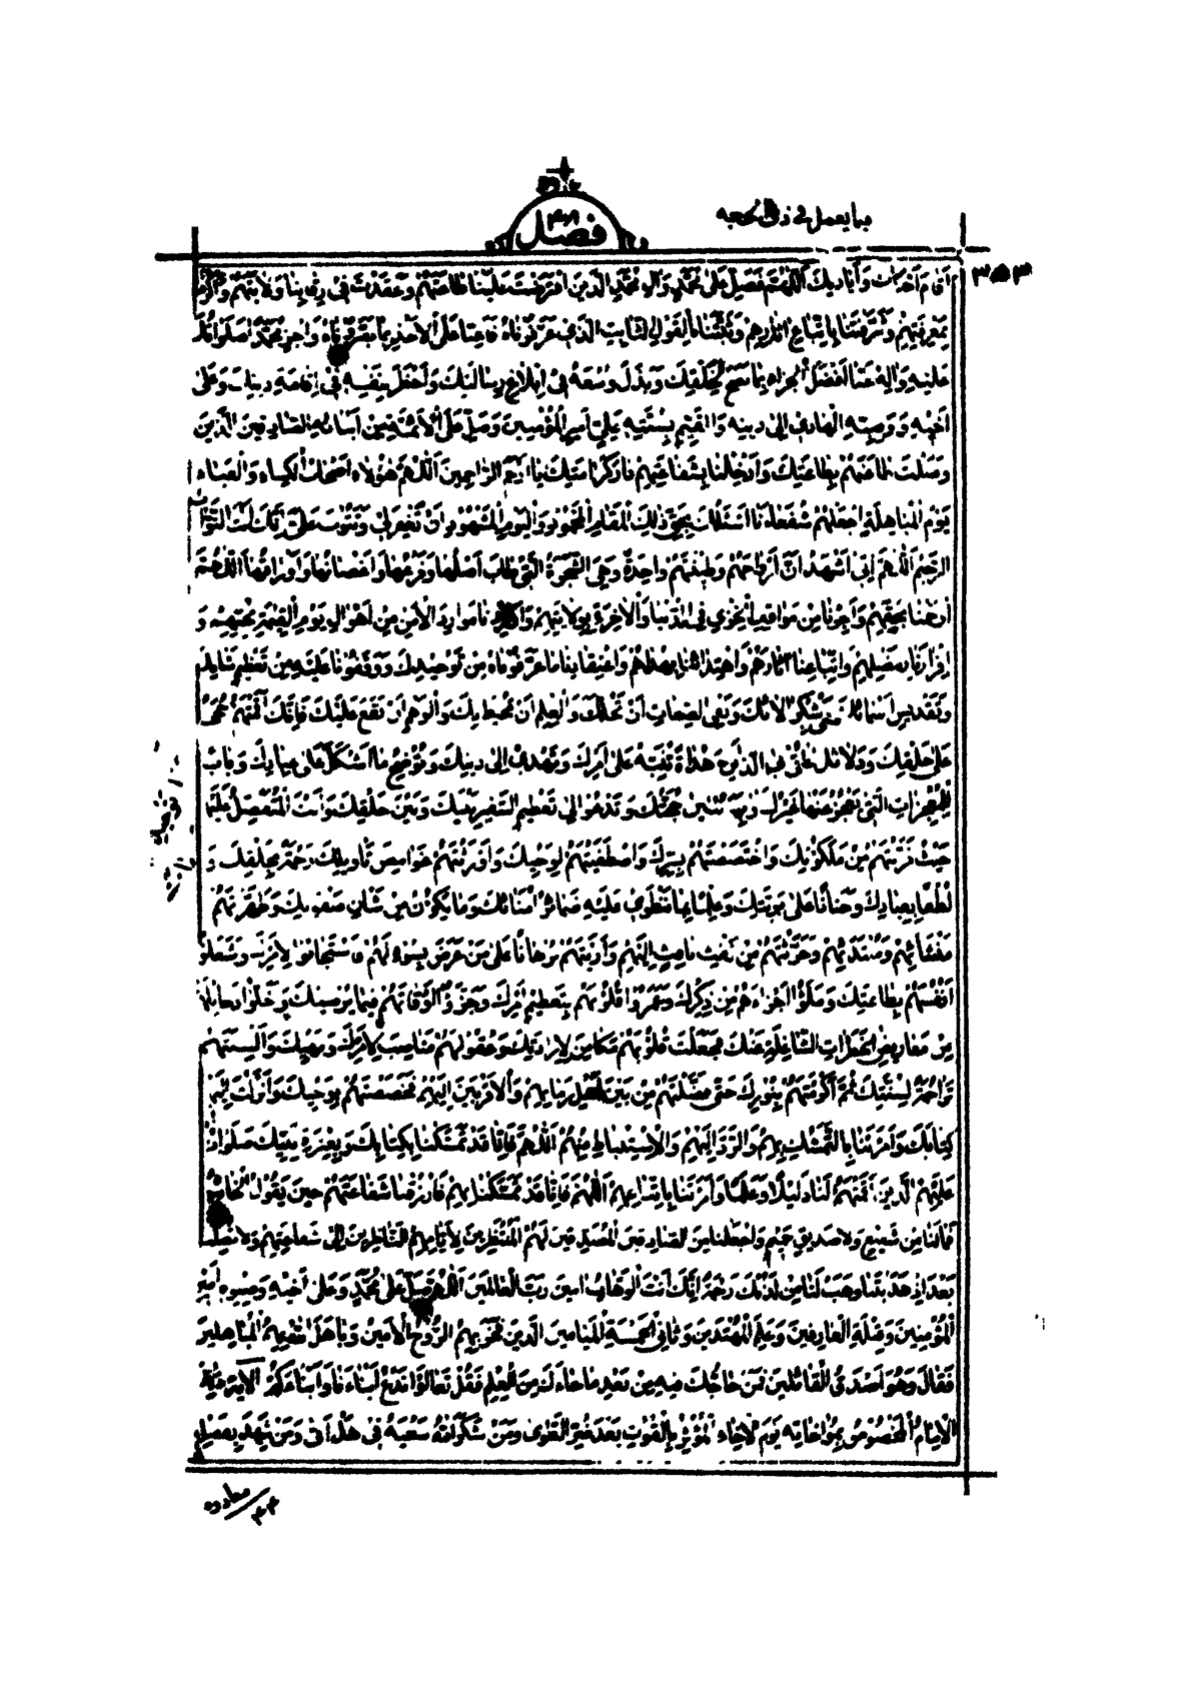 فيما يعمل في ذي الحجة
فصل ۴۸
۳۵۳
وَأَيَادِيكَ اللَّهُمَّ فَصَلِّ عَلَى مُحَمَّدٍ وَآلِ مُحَمَّدٍ الَّذِينَ افْتَرَضْتَ عَلَيْنَا طَاعَتَهُمْ وَعَقَدْتَ فِي رِقَابِنَا وَلَايَتَهُمْ
بِمَعْرِفَتِهِمْ وَشَرَّفْتَنَا بِاتِّبَاعِ آثَارِهِمْ وَثَبَّتَّنَا بِالْقَوْلِ الثَّابِتِ الَّذِي عَرَّفُونَاهُ فَأَعِنَّا عَلَى الْأَخْذِ بِمَا بَصَّرُونَاهُ وَاجْزِ مُحَمَّدًا
عَلَيْهِ وَآلِهِ عَنَّا أَفْضَلَ الْجَزَاءِ بِمَا نَصَحَ لِخَلْقِكَ وَبَذَلَ وُسْعَهُ فِي إِبْلَاغِ رِسَالَتِكَ وَأَخْطَرَ بِنَفْسِهِ فِي إِقَامَةِ دِينِكَ وَعَلَى
أَخِيهِ وَوَصِيِّهِ الْهَادِي إِلَى دِينِهِ وَالْقَيِّمِ بِسُنَّتِهِ عَلِيٍّ أَمِيرِ الْمُؤْمِنِينَ وَصَلِّ عَلَى الْأَئِمَّةِ مِنْ أَبْنَائِهِ الصَّادِقِينَ الَّذِينَ
وَصَلْتَ طَاعَتَهُمْ بِطَاعَتِكَ وَأَدْخِلْنَا بِشَفَاعَتِهِمْ دَارَ كَرَامَتِكَ يَا أَرْحَمَ الرَّاحِمِينَ اللَّهُمَّ هَؤُلَاءِ أَصْحَابُ الْكِسَاءِ وَالْعَبَاءِ
يَوْمَ الْمُبَاهَلَةِ اجْعَلْهُمْ شُفَعَاءَنَا أَسْأَلُكَ بِحَقِّ ذَلِكَ الْمَقَامِ الْمَحْمُودِ وَالْيَوْمِ الْمَشْهُودِ أَنْ تَغْفِرَ لِي وَتَتُوبَ عَلَيَّ إِنَّكَ أَنْتَ التَّوَّابُ
الرَّحِيمُ اللَّهُمَّ إِنِّي أَشْهَدُ أَنَّ أَرْوَاحَهُمْ وَطِينَتَهُمْ وَاحِدَةٌ وَهِيَ الشَّجَرَةُ الَّتِي طَابَ أَصْلُهَا وَفَرْعُهَا وَأَغْصَانُهَا وَأَوْرَاقُهَا اللَّهُمَّ
ارْحَمْنَا بِحَقِّهِمْ وَأَجِرْنَا مِنْ مَوَاقِفِ الْخِزْيِ فِي الدُّنْيَا وَالْآخِرَةِ بِوَلَايَتِهِمْ وَأَوْرِدْنَا مَوَارِدَ الْأَمْنِ مِنْ أَهْوَالِ يَوْمِ الْقِيٰمَةِ بِحُبِّهِمْ وَ
إِقْرَارِنَا بِفَضْلِهِمْ وَاتِّبَاعِنَا آثَارَهُمْ وَاهْتِدَائِنَا بِهُدَاهُمْ وَاعْتِقَادِنَا مَا عَرَّفُونَاهُ مِنْ تَوْحِيدِكَ وَوَقَفُونَا عَلَيْهِ مِنْ تَعْظِيمِ شَأْنِكَ
وَتَقْدِيسِ أَسْمَائِكَ وَشُكْرِ آلَائِكَ وَنَفْيِ الصِّفَاتِ أَنْ تَحُلَّكَ وَالْعِلْمِ أَنْ يُحِيطَ بِكَ وَالْوَهْمِ أَنْ يَقَعَ عَلَيْكَ فَإِنَّكَ أَقَمْتَهُمْ حُجَجًا
عَلَى خَلْقِكَ وَدَلَائِلَ عَلَى تَوْحِيدِكَ وَهُدَاةً تُنَبِّهُ عَلَى أَمْرِكَ وَتَهْدِي إِلَى دِينِكَ وَتُوضِحُ مَا أَشْكَلَ عَلَى عِبَادِكَ وَبَابًا
لِلْمُعْجِزَاتِ الَّتِي يَعْجِزُ عَنْهَا غَيْرُكَ وَبِهَا تَبِينُ حُجَّتُكَ وَتَدْعُو إِلَى تَعْظِيمِ السَّفِيرِ بَيْنَكَ وَبَيْنَ خَلْقِكَ وَأَنْتَ الْمُتَفَضِّلُ عَلَيْهِمْ
حَيْثُ قَرَّبْتَهُمْ مِنْ مَلَكُوتِكَ وَاخْتَصَصْتَهُمْ بِسِرِّكَ وَاصْطَفَيْتَهُمْ لِوَحْيِكَ وَأَوْرَثْتَهُمْ غَوَامِضَ تَأْوِيلِكَ رَحْمَةً بِخَلْقِكَ وَ
لُطْفًا بِعِبَادِكَ وَحَنَانًا عَلَى بَرِيَّتِكَ وَعِلْمًا بِمَا تَنْطَوِي عَلَيْهِ ضَمَائِرُ أُمَنَائِكَ وَمَا يَكُونُ مِنْ شَأْنِ صَفْوَتِكَ وَطَهَّرْتَهُمْ
فِي مَنْشَئِهِمْ وَمُبْتَدَئِهِمْ وَحَرَسْتَهُمْ مِنْ نَفْثِ نَافِثٍ إِلَيْهِمْ وَأَرَيْتَهُمْ بُرْهَانًا عَلَى مَنْ عَرَضَ بِسُوءٍ لَهُمْ فَاسْتَجَابُوا لِأَمْرِكَ وَشَغَلُوا
أَنْفُسَهُمْ بِطَاعَتِكَ وَمَلَئُوا أَجْزَاءَهُمْ مِنْ ذِكْرِكَ وَعَمَرُوا قُلُوبَهُمْ بِتَعْظِيمِ أَمْرِكَ وَجَزَّءُوا أَوْقَاتَهُمْ فِيمَا يُرْضِيكَ وَأَخْلَوْا دَخَائِلَهُمْ
مِنْ مَعَارِيضِ الْخَطَرَاتِ الشَّاغِلَةِ عَنْكَ فَجَعَلْتَ قُلُوبَهُمْ مَكَامِنَ لِإِرَادَتِكَ وَعُقُولَهُمْ مَنَاصِبَ لِأَمْرِكَ وَنَهْيِكَ وَأَلْسِنَتَهُمْ
تَرَاجِمَةً لِسُنَّتِكَ ثُمَّ أَكْرَمْتَهُمْ بِنُورِكَ حَتَّى فَضَّلْتَهُمْ مِنْ بَيْنِ أَهْلِ زَمَانِهِمْ وَالْأَقْرَبِينَ إِلَيْهِمْ فَخَصَصْتَهُمْ بِوَحْيِكَ وَأَنْزَلْتَ إِلَيْهِمْ
كِتَابَكَ وَأَمَرْتَنَا بِالتَّمَسُّكِ بِهِمْ وَالرَّدِّ إِلَيْهِمْ وَالِاسْتِنْبَاطِ مِنْهُمْ اللَّهُمَّ فَإِنَّا قَدْ تَمَسَّكْنَا بِكِتَابِكَ وَبِعِتْرَةِ نَبِيِّكَ صَلَوَاتُكَ
عَلَيْهِمْ الَّذِينَ أَقَمْتَهُمْ لَنَا دَلِيلًا وَعَلَمًا وَأَمَرْتَنَا بِاتِّبَاعِهِمْ اللَّهُمَّ فَإِنَّا قَدْ تَمَسَّكْنَا بِهِمْ فَارْزُقْنَا شَفَاعَتَهُمْ حِينَ يَقُولُ الْخَائِبُونَ
فَمَا لَنَا مِنْ شَافِعِينَ وَلَا صَدِيقٍ حَمِيمٍ وَاجْعَلْنَا مِنَ الصَّادِقِينَ الْمُصَدِّقِينَ لَهُمْ الْمُنْتَظِرِينَ لِأَيَّامِهِمْ النَّاظِرِينَ إِلَى شَفَاعَتِهِمْ وَلَا تُضِلَّنَا
بَعْدَ إِذْ هَدَيْتَنَا وَهَبْ لَنَا مِنْ لَدُنْكَ رَحْمَةً إِنَّكَ أَنْتَ الْوَهَّابُ آمِينَ رَبَّ الْعَالَمِينَ اللَّهُمَّ صَلِّ عَلَى مُحَمَّدٍ وَعَلَى أَخِيهِ وَصِنْوِهِ أَمِيرِ
الْمُؤْمِنِينَ وَقِبْلَةِ الْعَارِفِينَ وَعَلَمِ الْمُهْتَدِينَ وَثَانِي الْخَمْسَةِ الْمَيَامِينِ الَّذِينَ فَخَرَ بِهِمُ الرُّوحُ الْأَمِينُ وَبَاهَلَ اللَّهُ بِهِمُ الْمُبَاهِلِينَ
فَقَالَ وَهُوَ أَصْدَقُ الْقَائِلِينَ فَمَنْ حَاجَّكَ فِيهِ مِنْ بَعْدِ مَا جَاءَكَ مِنَ الْعِلْمِ فَقُلْ تَعَالَوْا نَدْعُ أَبْنَاءَنَا وَأَبْنَاءَكُمْ الْآيَةَ ذَلِكَ
الْإِمَامُ الْمَخْصُوصُ بِمُؤَاخَاتِهِ يَوْمَ الْإِخَاءِ الْمُؤْثِرُ بِالْقُوتِ بَعْدَ ضُرِّ الطَّوَى وَمَنْ شَكَرَ اللَّهُ سَعْيَهُ فِي هَلْ أَتَى وَمَنْ شَهِدَ بِفَضْلِهِ